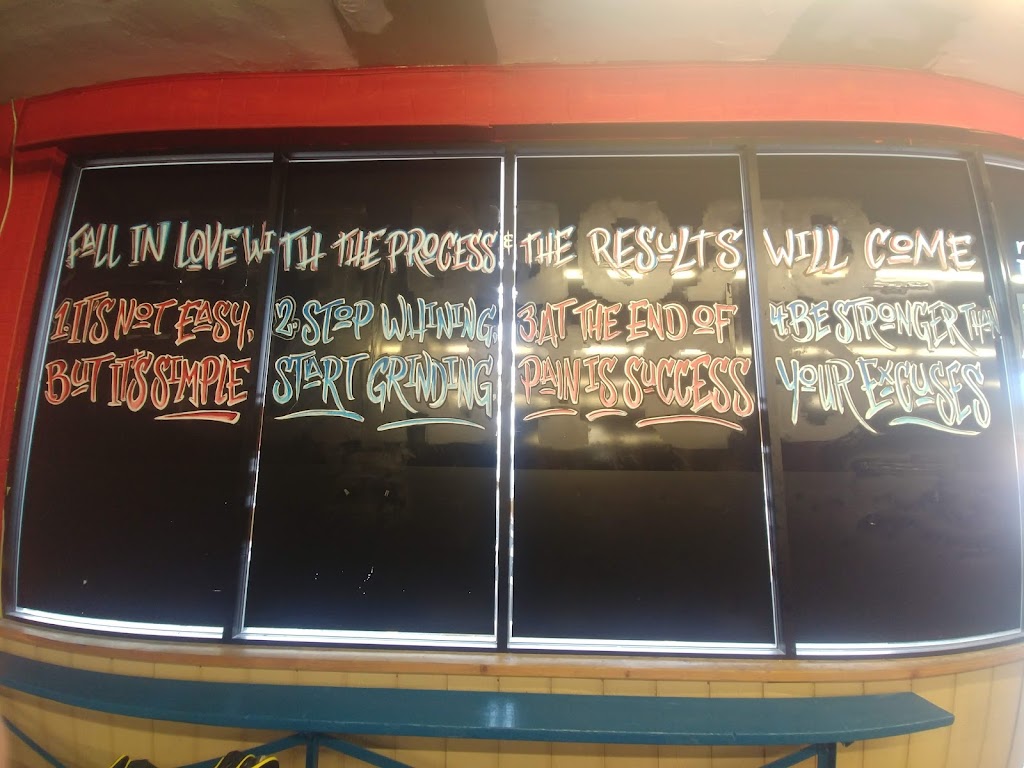 FALL IN LOVE WITH THE PROCESS & THE RESULTS WILL COME
1. IT'S NOT EASY,
BUT IT'S SIMPLE
2. STOP WHINING,
START GRINDING.
3. AT THE END OF
PAIN IS SUCCESS
4. BE STRONGER THAN
YOUR EXCUSES